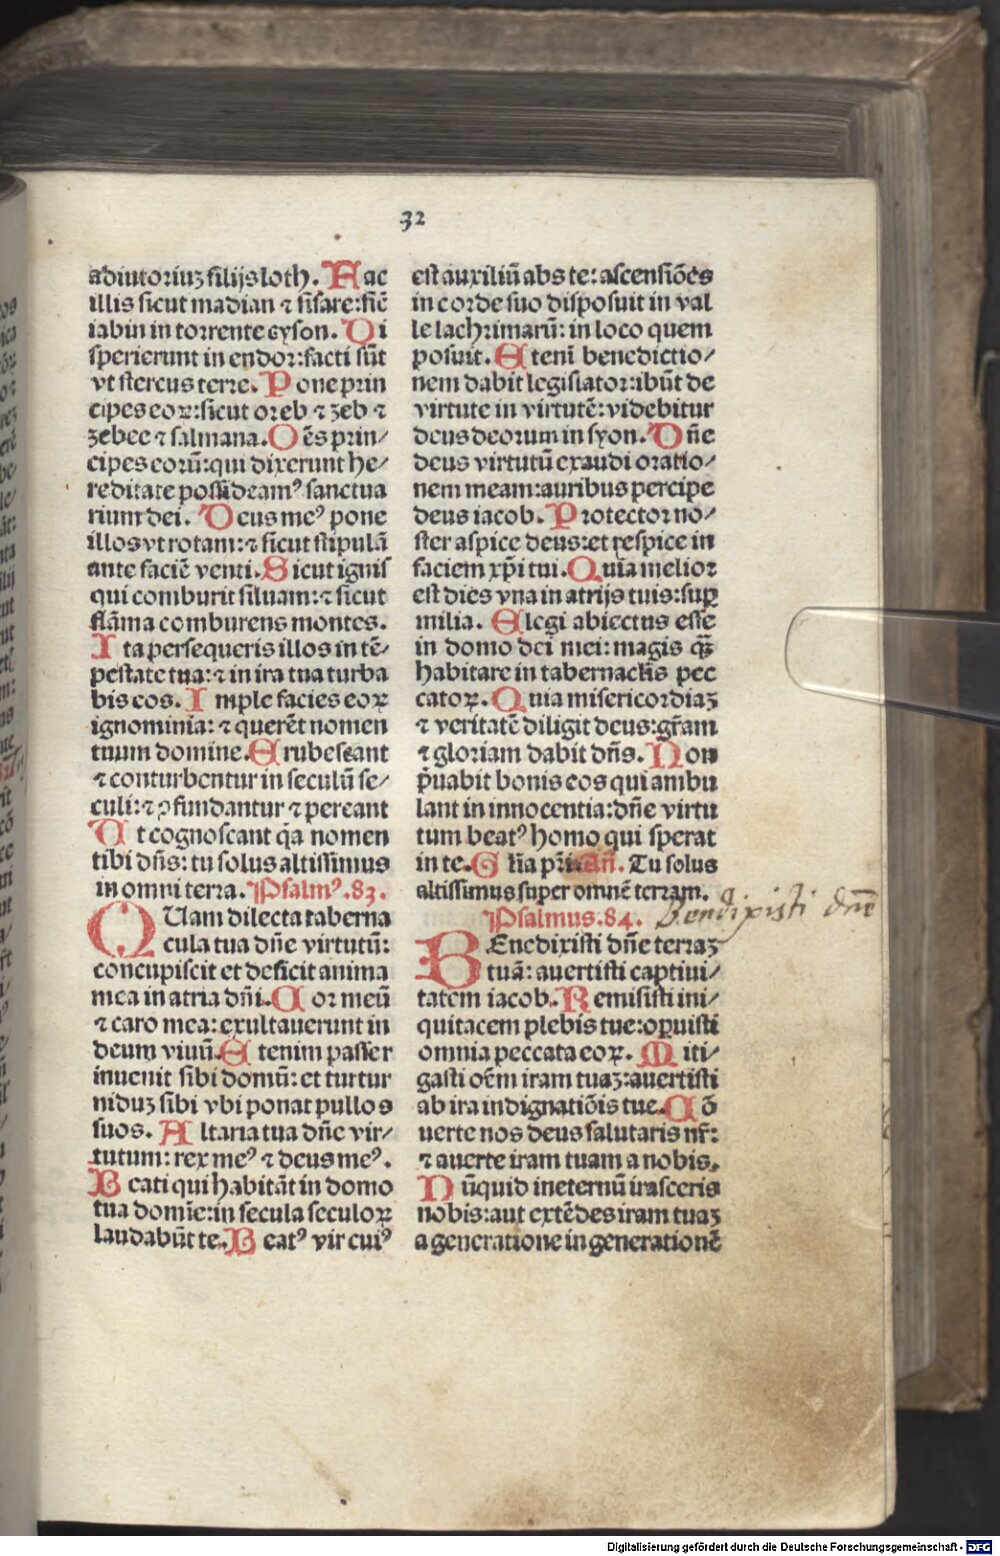 32
adiutoriuꝫ filijs loth. Fac
illis sicut madian ⁊ sisare: sic̄
iabin in torrente cyson. Di
sperierunt in endor: facti sūt
vt stercus terre. Pone prin
cipes eoꝝ: sicut oreb ⁊ zeb ⁊
zebee ⁊ salmana. Oēs prin/
cipes eorū: qui dixerunt he/
reditate possideamꝰ sanctua
rium dei. Deus meꝰ pone
illos vt rotam: ⁊ sicut stipulā
ante faciē venti. Sicut ignis
qui comburit siluam: ⁊ sicut
flāma comburens montes.
Ita persequeris illos in tē/
pestate tua: ⁊ in ira tua turba
bis eos. Imple facies eoꝝ
ignominia: ⁊ querēt nomen
tuum domine. Erubescant
⁊ conturbentur in seculū se/
culi: ⁊ ꝯfundantur ⁊ pereant
Ut cognoscant q̇a nomen
tibi dn̄s: tu solus altissimus
in omni terra. Psalmꝰ .83.
QUam dilecta taberna
cula tua dn̄e virtutū:
concupiscit et deficit anima
mea in atria dn̄i. Cor meū
⁊ caro mea: exultauerunt in
deum viuū. Etenim passer
inuenit sibi domū: et turtur
niduꝫ sibi vbi ponat pullos
suos. Altaria tua dn̄e vir/
tutum: rex meꝰ ⁊ deus meꝰ.
Beati qui habitāt in domo
tua domīe: in secula seculoꝝ
laudabūt te. Beatꝰ vir cuiꝰ
est auxiliū abs te: ascensiōes
in corde suo disposuit in val
le lachrimarū: in loco quem
posuit. Etenī benedictio/
nem dabit legislator: ibūt de
virtute in virtutē: videbitur
deus deorum in syon. Dn̄e
deus virtutū exaudi oratio/
nem meam: auribus percipe
deus iacob. Protector no/
ster aspice deus: et respice in
faciem xp̄i tui. Quia melior
est dies vna in atrijs tuis: suꝑ
milia. Elegi abiectus esse
in domo dei mei: magis q̄ꝫ
habitare in tabernacl̄is pec
catoꝝ. Quia misericordiaꝫ
⁊ veritatē diligit deus: gr̄am
⁊ gloriam dabit dn̄s. Non
p̄uabit bonis eos qui ambu
lant in innocentia: dn̄e virtu
tum beatꝰ homo qui sperat
in te. Gl̄ia pr̄i. Añ. Tu solus
altissimus super omnē terram.
Psalmus .84. Benedixisti dn̄e
BEnedixisti dn̄e terraꝫ
tuā: auertisti captiui/
tatem iacob. Remisisti ini/
quitacem plebis tue: opuisti
omnia peccata eoꝝ. Miti/
gasti oēm iram tuaꝫ: auertisti
ab ira indignatiōis tue. Cō
uerte nos deus salutaris nr̄:
⁊ auerte iram tuam a nobis.
Nūquid in eternū irasceris
nobis: aut extēdes iram tuaꝫ
a generatione in generationē
Digitalisierung gefördert durch die Deutsche Forschungsgemeinschaft - DFG